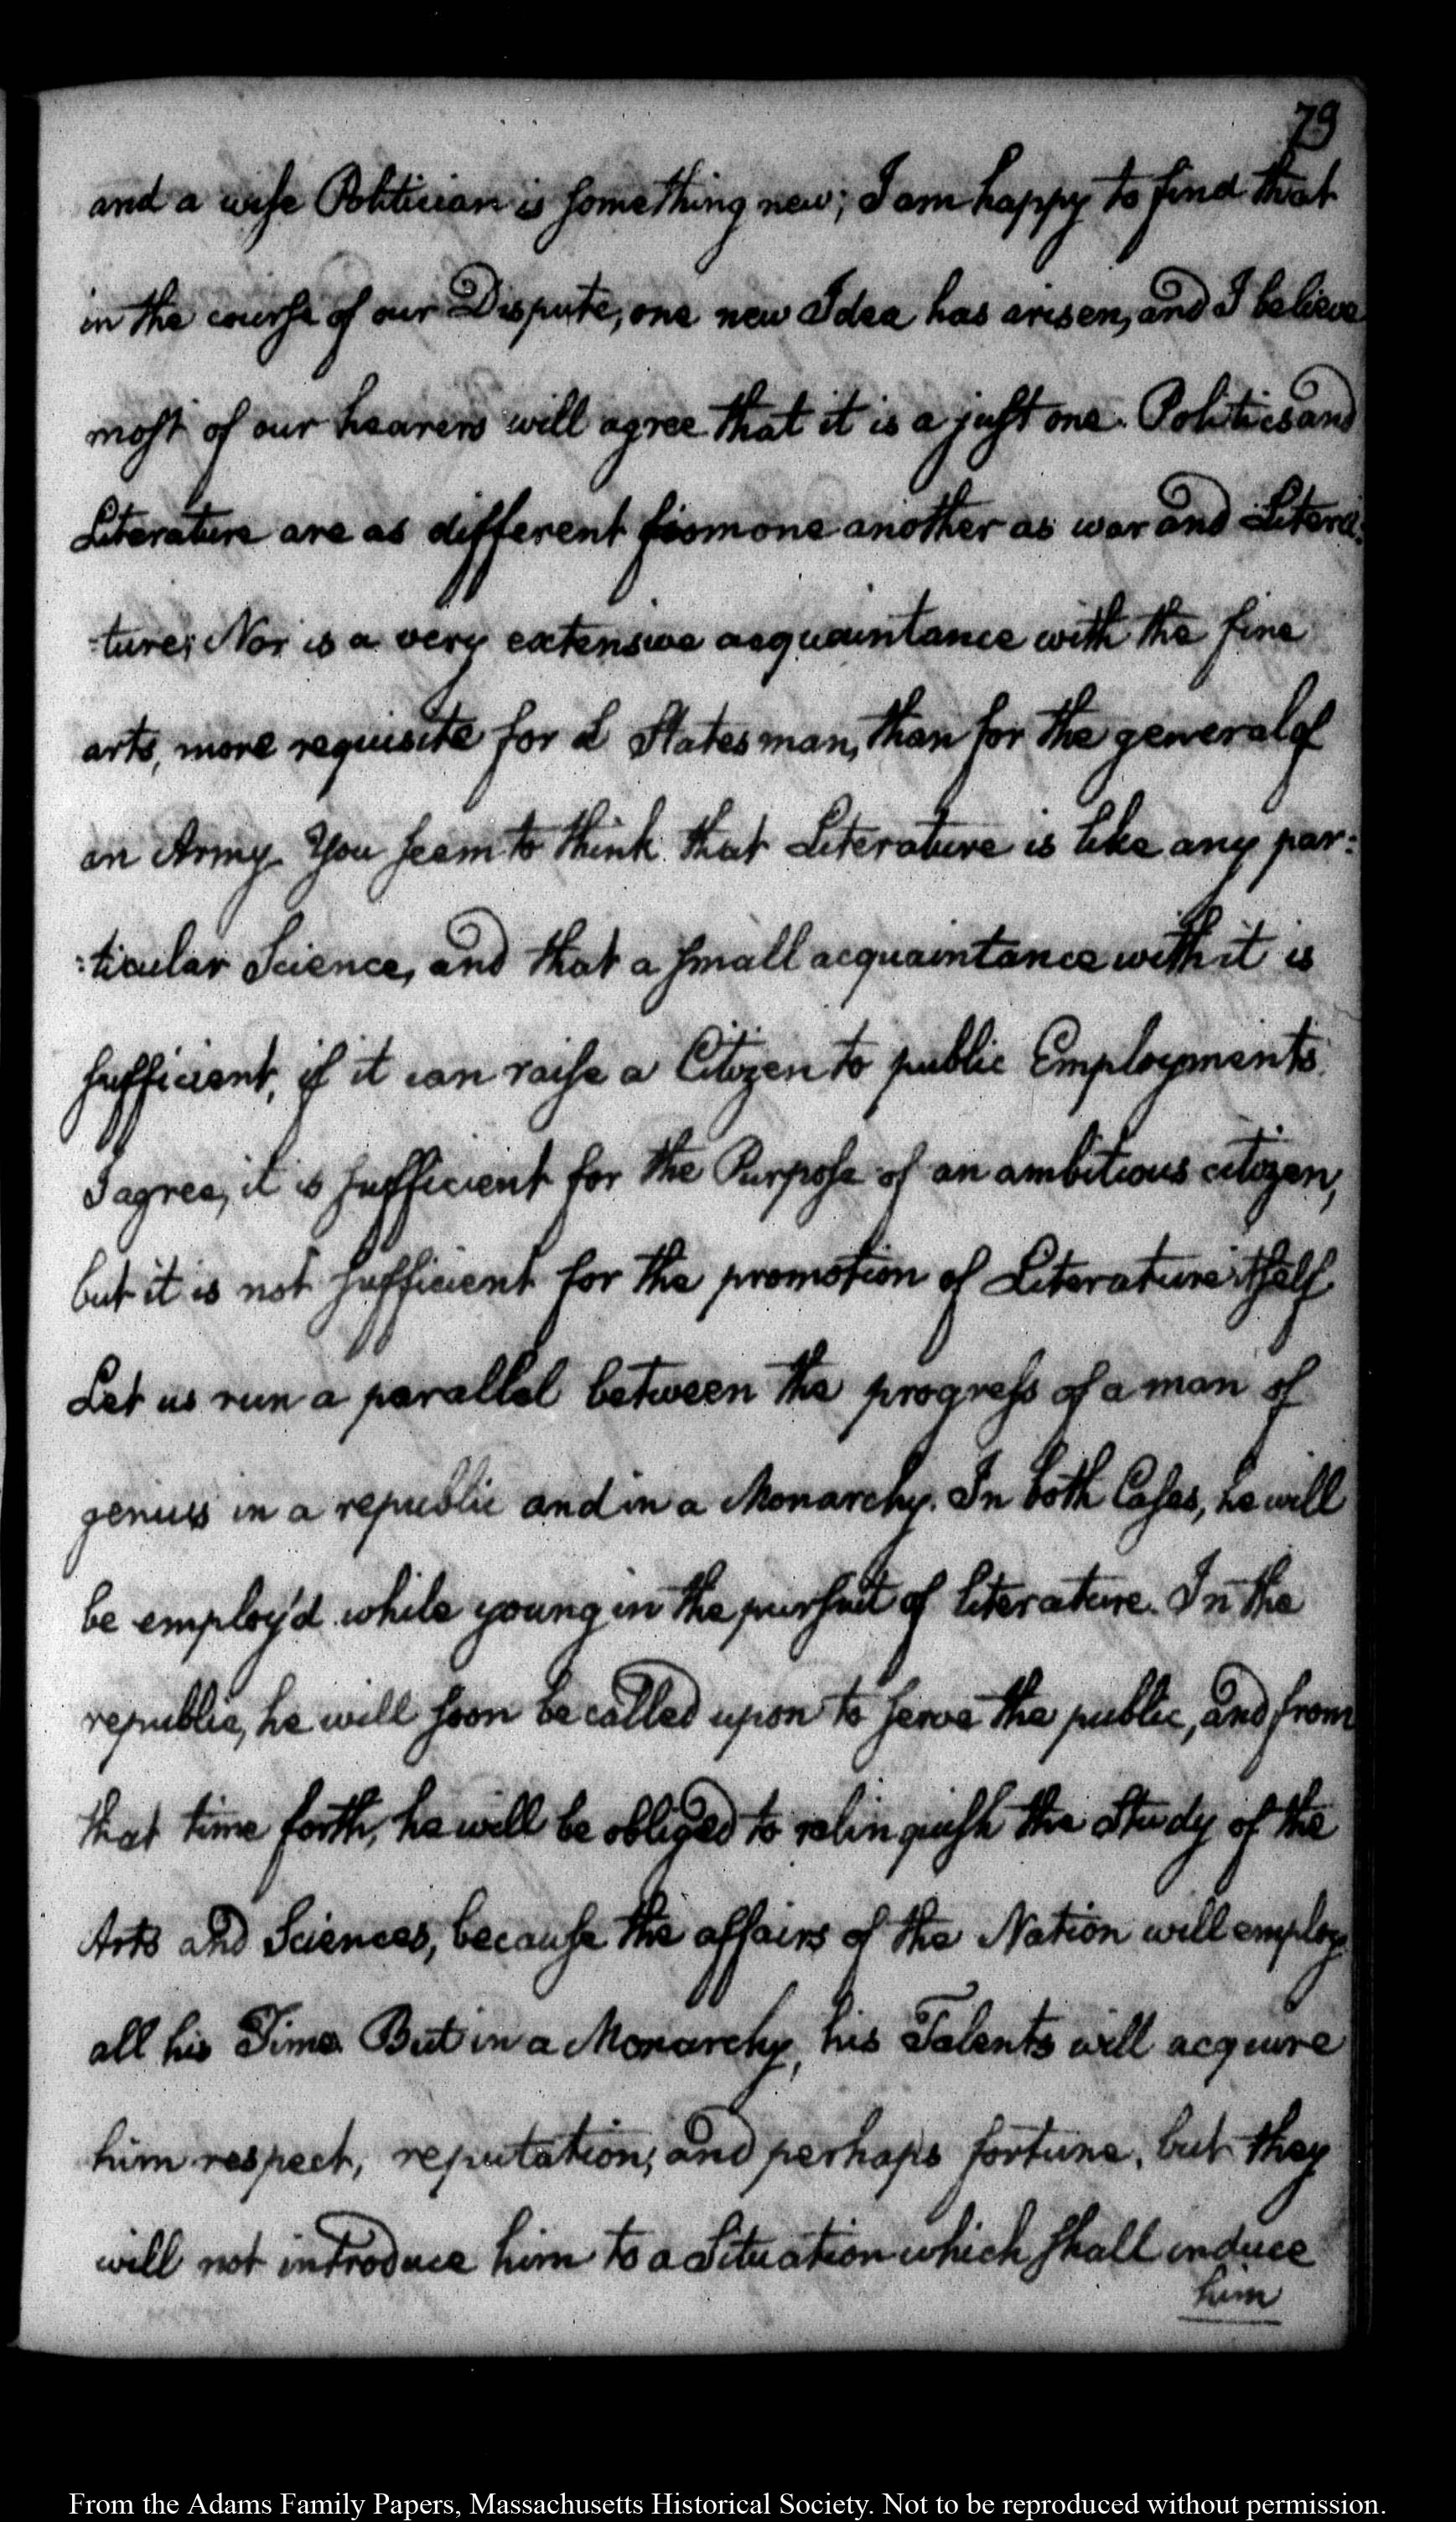 79
and a wise Politician is something new; I am happy to find that
in the course of our Dispute, one new Idea has arisen, and I believe
most of our hearers will agree that it is a just one. Politics and
Literature are as different from one another as war and Litera:
:ture; Nor is a very extensive acquaintance with the fine
arts, more requisite for a Statesman, than for the general of
an Army. You seem to think that Literature is like any par:
:ticular Science, and that a small acquaintance with it is
sufficient, if it can raise a Citizen to public Employments.
I agree, it is sufficient for the Purpose of an ambitious citizen,
but it is not sufficient for the promotion of Literature itself.
Let us run a parallel between the progress of a man of
genius in a republic and in a Monarchy. In both Cases, he will
be employ'd while young in the pursuit of literature. In the
republic, he will soon be called upon to serve the public, and from
that time forth, he will be obliged to relinquish the Study of the
Arts and Sciences, because the affairs of the Nation will employ
all his Time. But in a Monarchy, his Talents will acquire
him respect, reputation, and perhaps fortune, but they
will not introduce him to a Situation which shall induce
him
From the Adams Family Papers, Massachusetts Historical Society. Not to be reproduced without permission.